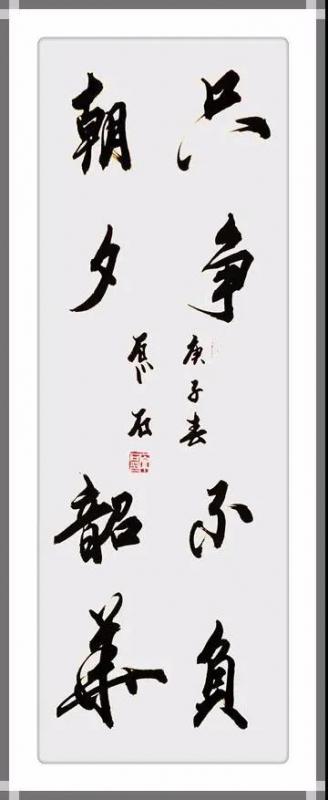 只争
朝夕
不負
韶華
庚子春